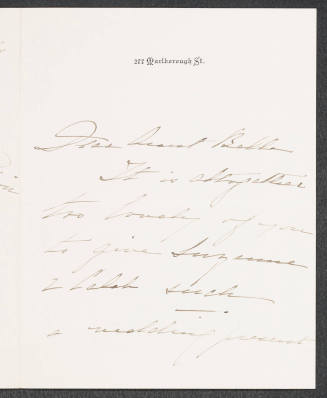 277 Marlborough St.
Dear Aunt Bella
It is altogether
too lovely of you
to give Suzanne
& Caleb such
a wedding present